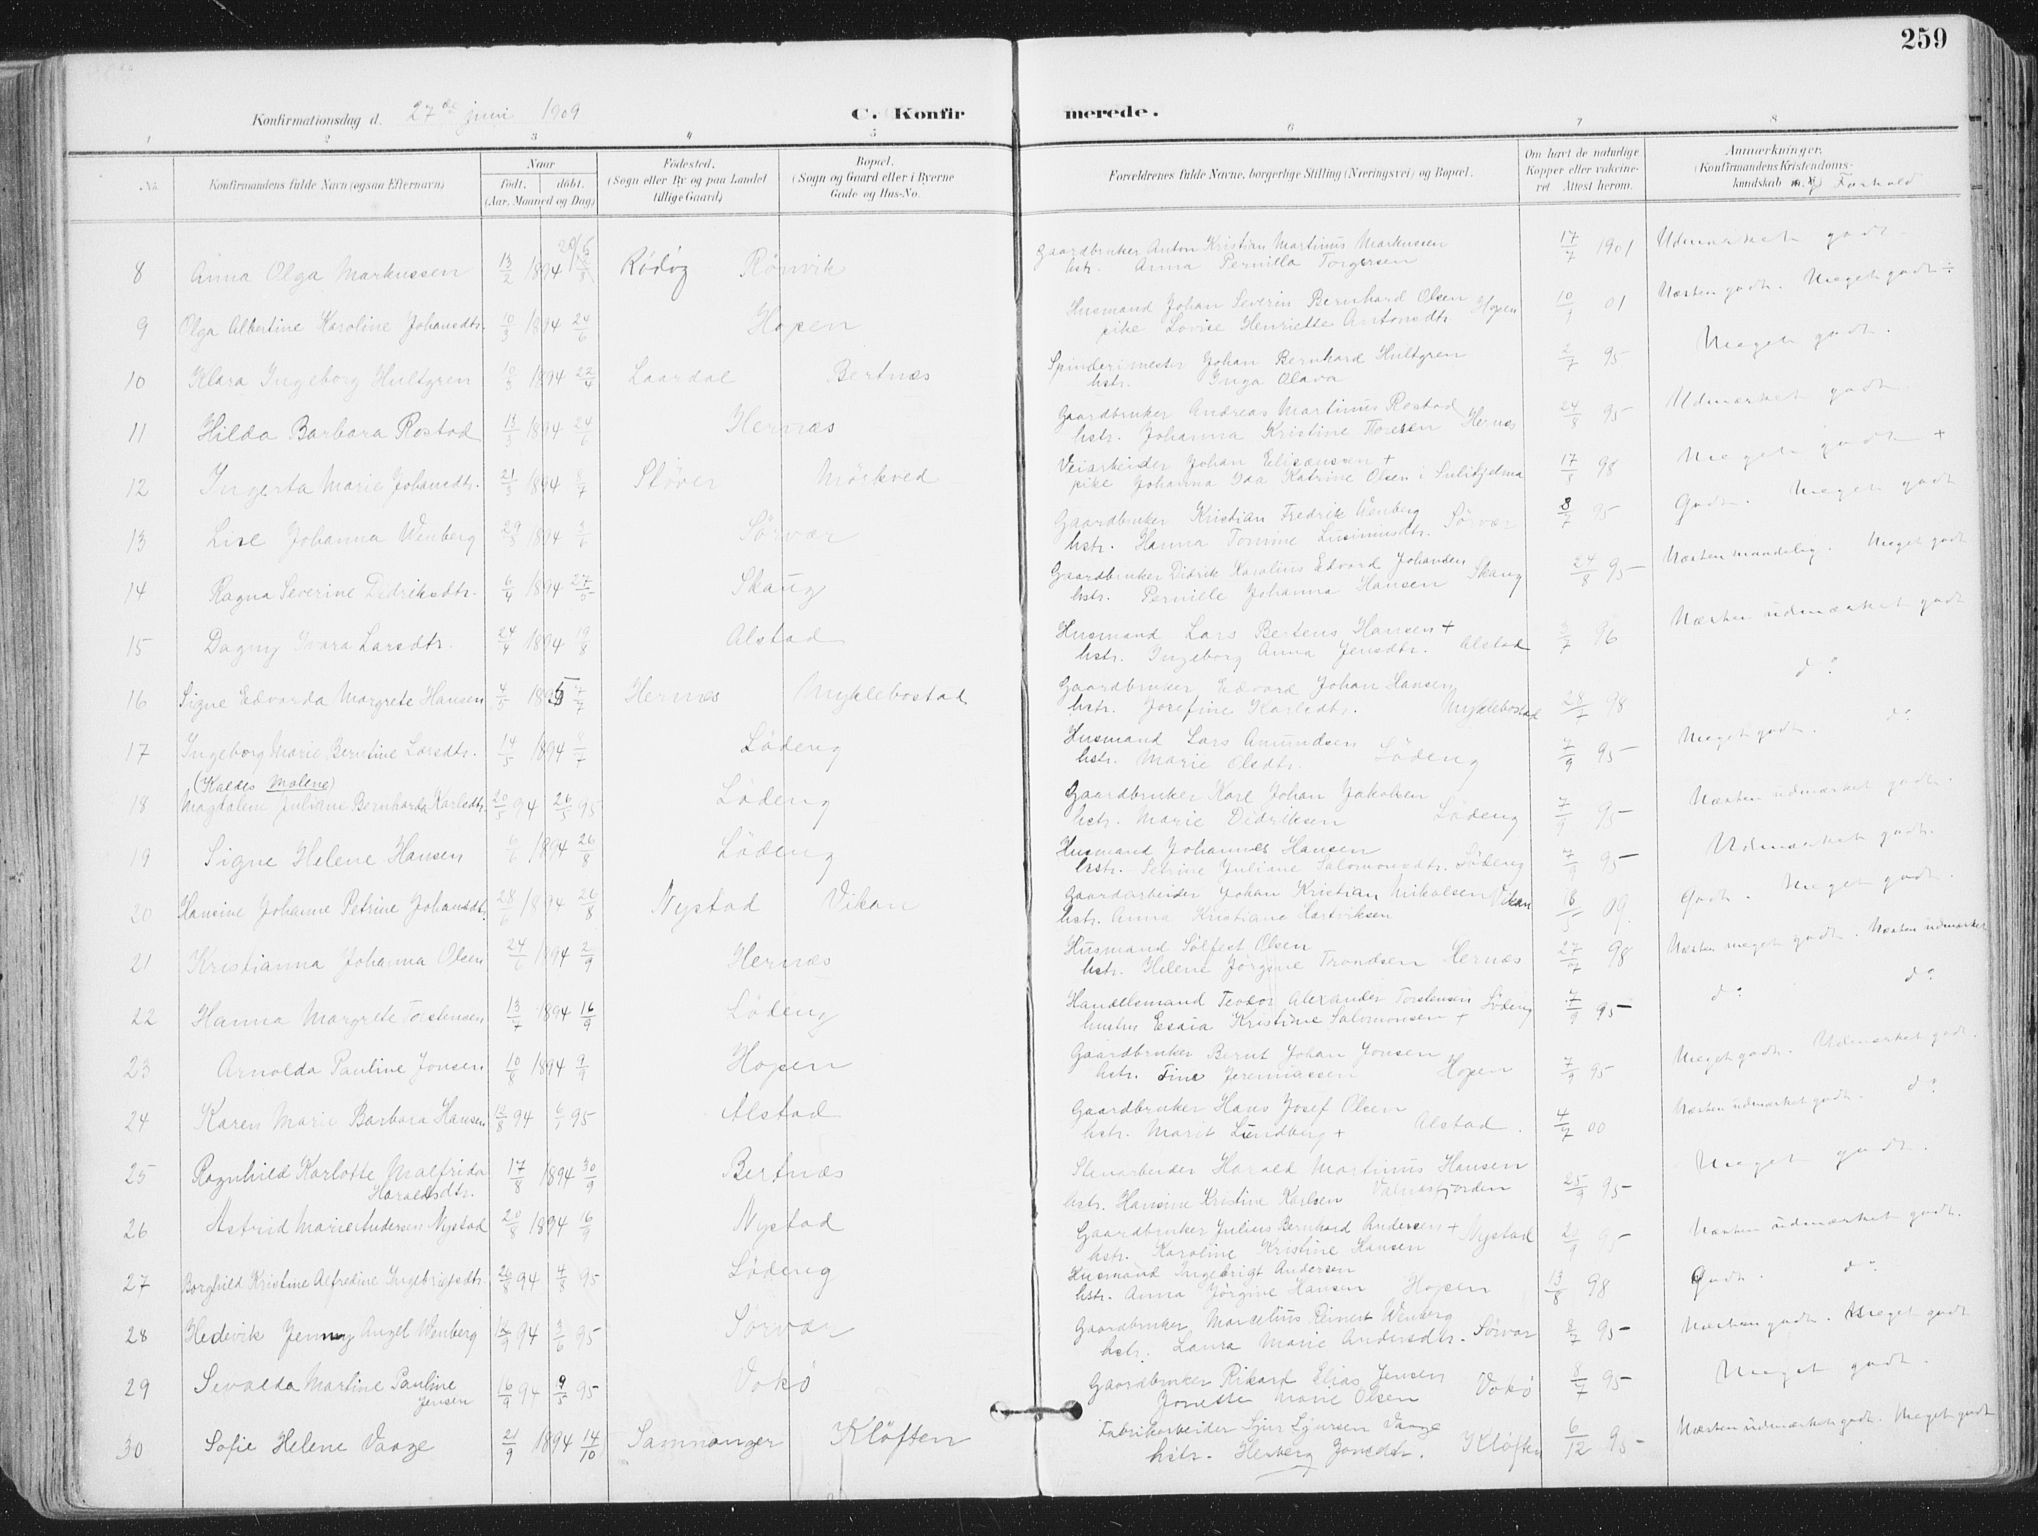 259
Konfirmationsdag d. 27de juni 1909
C. Konfirmerede.
1 2 3 4 5 6 7 8
No. Konfirmandens fulde Navn (ogsaa Efternavn)
Naar født. døbt. (Aar, Maaned og Dag)
Fødested. (Sogn eller By og paa Landet tillige Gaard)
Bopæl. (Sogn og Gaard eller i Byerne Gade- og Hus-No.
Forældrenes fulde Navne, borgerlige Stilling (Næringsvei) og Bopæl.
Om havt de naturlige Kopper eller vakcineret. Attest herom.
Anmærkninger. (Konfirmandens Kristendomskundskab m. v.) Forhold
8 Anna Olga Markussen 13/2 1894 Rödöy Rönvik Gaardbruker Anton Kristian Martinus Markussen 17/7 1901 Udmærket godt
hstr. Anna Pernilla Torgersen
9 Olga Albertine Karoline Johansdtr. 10/3 1894 24/6 Hopen Husmand Johan Severin Bernhard Olsen Hopen 10/9 01 Næsten godt. Meget godt ÷
pike Lovise Henriette Antonsdtr.
10 Klara Ingeborg Hultgren 10/3 1894 22/4 Laardal Bertnæs Spinderimester Johan Bernhard Hultgren 2/7 95 Meget godt.
hstr. Inga Olava
11 Hilda Barbara Rostad 13/3 1894 24/6 Hernæs Gaardbruker Andreas Martinus Rostad 24/8 95 Udmærket godt
hstr. Johanna Kristine Thoresen Hernes
12 Ingerta Marie Johansdtr. 21/3 1894 8/7 Støver Mörkved Veiarbeider Johan Eliseussen + 17/8 98 Meget godt +
pike Johanna Ida Katrine Olsen i Sulitjelma
13 Lise Johanna Wenberg 29/3 1894 3/6 Sörvær Gaardbruker Kristian Fredrik Wenberg Sörvær 8/7 95 Godt. Meget godt
hstr. Hanna Tomine
14 Ragna Severine Didriksdtr. 6/4 1894 27/5 Skaug Gaardbruker Didrik Karolius Edvard Johansen Skaug 24/8 95 Næsten maadelig. Meget godt
hstr. Pernille Johanna Hansen
15 Dagny Ivara Larsdtr. 24/4 1894 19/8 Alstad Husmand Lars Bertens Hansen + 3/7 96 Næsten udmærket godt
hstr. Ingeborg Anna Jensdtr. Alstad
16 Signe Edvarda Margrete Hansen 4/5 1895 7/7 Hernes Myklebostad Gaardbruker Edvard Johan Hansen 28/7 98 do
hstr. Josefine Karlsdtr. Myklebostad
17 Ingeborg Marie Berntine Larsdtr. 14/5 1894 8/7 Löding Husmand Lars Amundsen Löding 7/9 95 Meget godt. do
hstr. Marie Olsdtr.
(Kaldes Malene)
18 Magdalene Juliane Bernharda Karlsdtr. 20/5 94 26/5 95 Löding Gaardbruker Karl Johan Jakobsen 7/9 95 Næsten udmærket godt.
hstr. Marie Didriksen Löding
19 Signe Helene Hansen 6/6 1894 26/8 Löding Husmand Johannes Hansen 7/9 95 Udmærket godt.
hstr. Petrine Juliane Salomonsdtr. Löding
20 Hansine Johanne Petrine Johansdtr. 28/6 1894 26/8 Nystad Vikan Gaardarbeider Johan Kristian Nikolsen Vikan 16/5 09. Godt. Meget godt.
hstr. Anna Kristiane Hartviksen
21 Kristianna Johanna Olsen 24/6 1894 2/9 Hernæs Husmand Sölfest Olsen 27/7 98 Næsten meget godt. Næsten udmærket
hstr. Helene Jörgine Trondsen Hernæs
22 Hanna Margrete Torstensen 13/7 1894 16/9 Löding Handelsmand Teodor Alexander Torstensen Löding 7/9 95 do do
hustru Esaia Kristine Salomonsen +
23 Arnolda Pauline Jonsen 10/8 1894 9/9 Hopen Gaardbruker Bernt Johan Jonsen 7/9 95 Meget godt. Udmærket godt.
hstr. Tine Jeremiassen Hopen
24 Karen Marie Barbara Hansen 13/8 94 6/7 95 Alstad Gaardbruker Hans Josef Olsen 4/7 00 Næsten udmærket godt. do
hstr. Marit Lundberg + Alstad.
25 Ragnhild Karlotte Malfrida 17/8 1894 30/9 Bertnæs Stenarbeider Harald Martinus Hansen 25/9 95 Meget godt.
Haraldsdtr. hstr. Hansine Kristine Karlsen Valnesfjorden
26 Astrid Marie Andersen Nystad 20/8 1894 16/9 Nystad Gaardbruker Julius Bernhard Andersen + Nystad 20/9 95 Næsten udmærket godt.
hstr. Karoline Kristine Hansen
27 Borghild Kristine Alfredine Ingebrigtsdtr. 26/8 94 4/8 95 Löding Husmand Ingebrigt Andersen 13/8 98 Godt. do
hstr. Anna Jörgine Hansen Hopen
28 Hedevik Jenny Angel Wenberg 14/9 94 3/6 95 Sörvær Gaardbruker Marcelius Reinert Wenberg 8/7 95 Næsten godt. Meget godt
hstr. Laura Marie Andersdtr. Sörvær
29 Sevalda Martine Pauline 16/9 94 9/5 95 Vokö Gaardbruker Rikard Elias Jensen Vokö 8/7 95 Meget godt.
Jensen Jonette Marie Olsen
30 Sofie Helene Vaage 21/9 1894 14/10 Samnanger Kløften Fabrikarbeider Sjur Sjursen Vaage 6/12 95 Næsten udmærket godt. Meget godt
hstr. Herborg Jonsdtr. Kløften